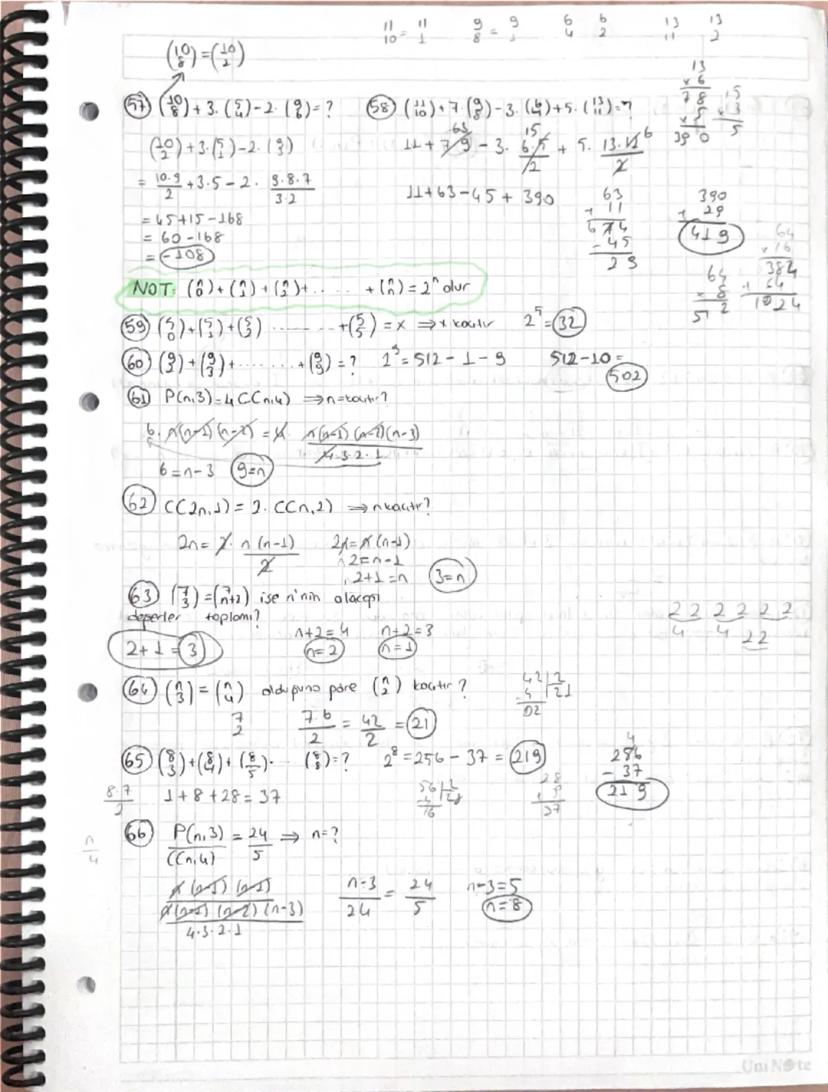 11 11 9 9 6 6 13 13
10 = 1 8 = 4 2 11 2
(10 8) = (10 2)
57) (10 8) + 3. (5 4) - 2. (9 6) = ?
(10 2) + 3. (5 1) - 2. (9 3)
= 10.9/2 + 3.5 - 2. 9.8.7/3.2
= 45 + 15 - 168
= 60 - 168
= -108
58) (11 10) + 7. (9 8) - 3. (6 4) + 5. (13 11) = ?
11 + 7.9 - 3. 6.5/2 + 5. 13.12/2
63 15 6
11 + 63 - 45 + 390
63
+ 11
674
- 45
29
390
+ 29
419
13
x 6
78
x 5
390
15
x 3
5
64
x 8
512
64
x 16
384
+ 64
1024
NOT: (n 0) + (n 1) + (n 2) + ...... + (n n) = 2ⁿ olur
59) (5 0) + (5 1) + (5 2) ........ + (5 5) = x ⇒ x kaçtır 2⁵ = 32
60) (9 2) + (9 3) + ........ + (9 9) = ? 2⁹ = 512 - 1 - 9 512 - 10 =
502
61) P(n,3) = 4 C(n,4) ⇒ n = kaçtır?
6. n(n-1)(n-2) = 4. n(n-1)(n-2)(n-3)/4.3.2.1
6 = n - 3 9 = n
62) C(2n,1) = 2. C(n,2) ⇒ n kaçtır?
2n = 2. n(n-1)/2 2n = n(n-1)
2 = n - 1
2 + 1 = n 3 = n
63) (7 3) = (7 n+2) ise n'nin alacağı
değerler toplamı?
n+2 = 4 n+2 = 3
2 + 1 = 3 n = 2 n = 1
22 22 22
4 4 22
64) (n 3) = (n 4) olduğuna göre (n 2) kaçtır?
7 2 7.6/2 = 42/2 = 21
42 2
- 4 21
02
65) (8 3) + (8 4) + (8 5). (8 8) = ? 2⁸ = 256 - 37 = 219
8.7/2 1 + 8 + 28 = 37
56 2
4 28
16
28
+ 9
37
4
256
- 37
219
66) P(n,3)/C(n,4) = 24/5 ⇒ n = ?
n
4
n (n-1) (n-2)
n(n-1) (n-2) (n-3)
4.3.2.1
n-3/24 = 24/5 n-3 = 5
n = 8
UniNote